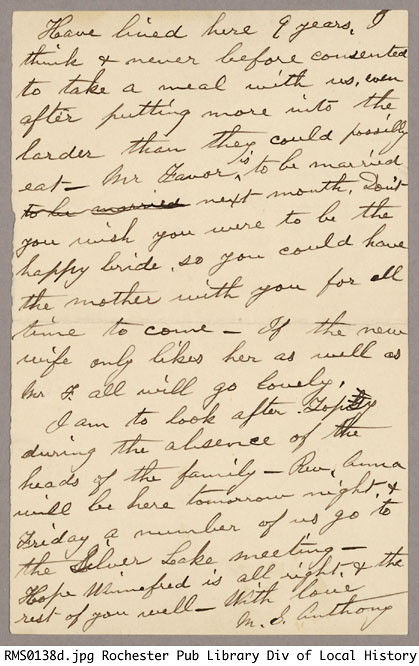 Have lived here 9 years, I
think & never before consented
to take a meal with us, even
after putting more into the
larder than they could possibly
eat – Mr Favor is to be married
to be married next month, Don't
you wish you were to be the
happy bride, so you could have
the mother with you for all
time to come – If the new
wife only likes her as well as
Mr F. all will go lovely,
I am to look after Topsy
during the absence of the
heads of the family – Rev. Anna
will be here tomorrow night, &
Friday a number of us go to
the Silver Lake meeting –
Hope Winnefred is all right, & the
rest of you well – With love
M. S. Anthony
RMS0138d.jpg Rochester Pub Library Div of Local History